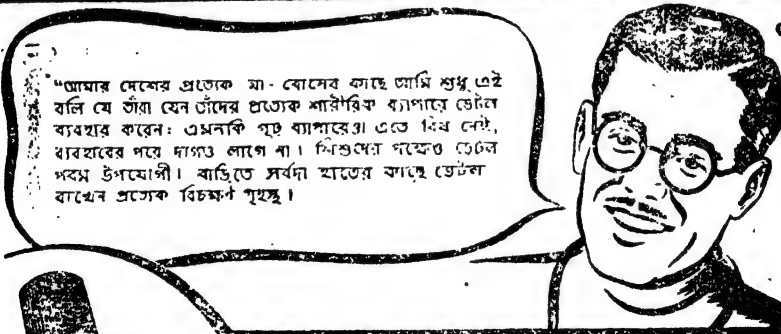 "আমার দেশের প্রত্যেক মা - বোনের কাছে আমি শুধু এই
বলি যে তাঁরা যেন তাঁদের প্রত্যেক শারীরিক ব্যাপারে ডেটল
ব্যবহার করেন: এমনকি গূঢ় ব্যাপারেও। এতে বিষ নেই,
ব্যবহারের পরে দাগও লাগে না। শিশুদের পক্ষেও ডেটল
পরম উপযোগী। বাড়িতে সর্বদা হাতের কাছে ডেটল
রাখেন প্রত্যেক বিচক্ষণ গৃহস্থ।